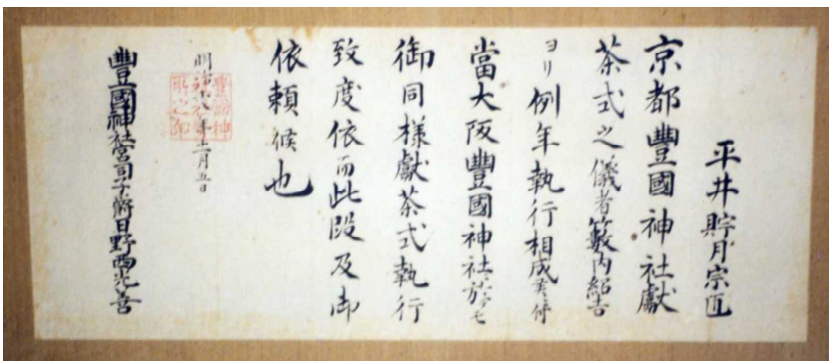 平井貯月宗匠
京都豐國神社獻
茶式之儀者籔内紹吉
ヨリ例年執行相成候ニ付
當大阪豐國神社ニ於テモ
御同様獻茶式執行
致度依而此段及御
依頼候也
明治 年十一月五日
豐國神社宮司子爵日野西光善